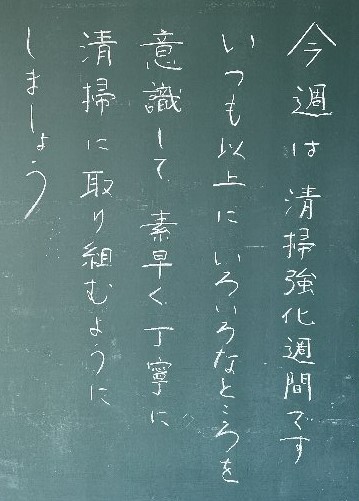 今週は清掃強化週間です
いつも以上にいろいろなところを
意識して素早く丁寧に
清掃に取り組むように
しましょう